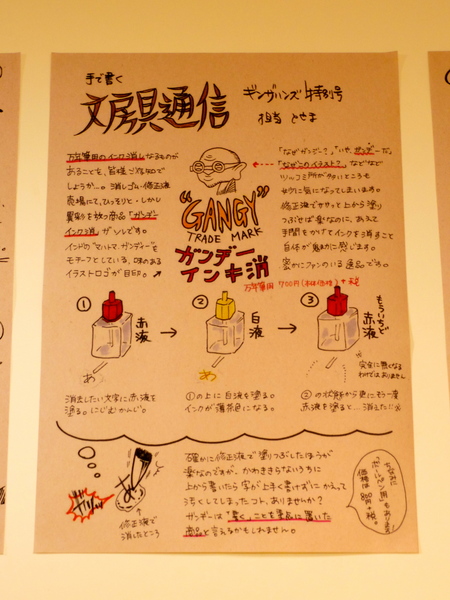 手で書く
文房具通信
ギンザハンズ特別号
担当 とせま
万年筆用のインク消しなるものが
あることを、皆様ご存知で
しょうか…。消しゴム・修正液
売場にて、ひっそりと・しかし
異彩を放つ商品「ガンヂー
インキ消」がソレです。
インドの"マハトマ・ガンディー"を
モチーフとしている、味のある
イラストロゴが目印。
"GANGY"
TRADE MARK
ガンヂー
インキ消
万年筆用 700円(本体価格)+税
「なぜガンヂー?」「いや、ガンヂーだ。」
「なぜこのイラスト?」などなど
ツッコミ所が多いところも
妙に気になってしまいます。
修正液でササッと上から塗り
つぶせば楽なのに、あえて
手間をかけてインクを消すこと
自体が魅力に感じます。
密かにファンのいる逸品です。
① 赤液
あ
消去したい文字に赤液を
塗る。にじむかんじ。
② 白液
あ
①の上に白液を塗る。
インクが薄茶色になる。
③ もういちど赤液
完全に無くなる
わけではありません
②の状態から更にもう一度
赤液を塗ると…消えた!!
ガリッ
修正液で
消したところ
確かに修正液で塗りつぶしたほうが
楽なのですが、かわききらないうちに
上から書いたら字が上手く書けずにかえって
汚くしてしまったコト、ありませんか?
ガンヂーは「書く」ことを重点に置いた
商品と言えるかもしれません。
ちなみに
「ボールペン用」もあります!
価格は800円+税。